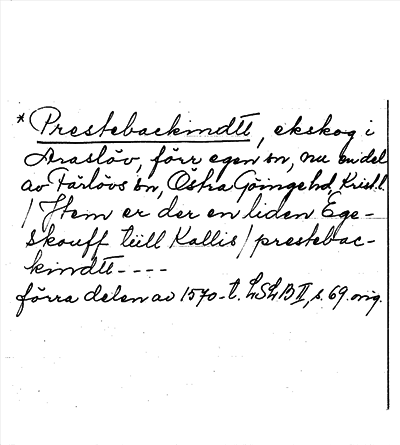 * Prestebackindtt, ekskog i
Araslöv, förr egen sn, nu en del
av Färlövs sn, Östra Göingehd, Krist. l.
/ Jtem er der en liden Ege-
skouff tüll Kallis / prestebac-
kindtt ----
förra delen av 1570-t. LSLB II, s. 69. orig.